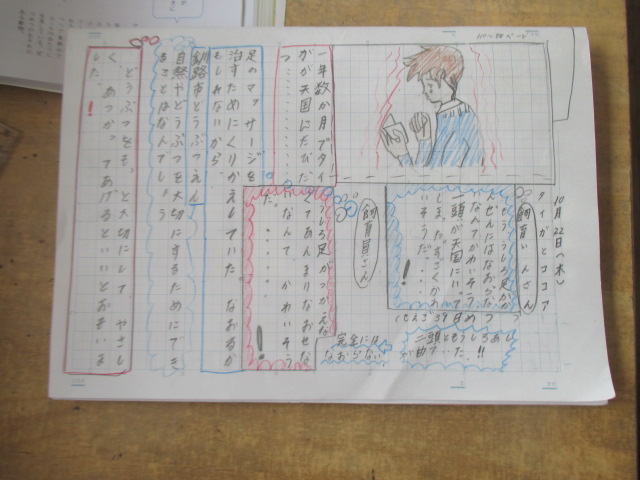 10月22日(木)
タイガとココア
飼育いんさん
もううしろ足が
んぜんにはなおらなつ
なんてかわいそう
一頭が天国にいって
しまった。すごくかわ
いそうだ・・・・・!
(生まれ39日め
二頭ともうしろあし
が曲っていた。!!
完全には
なおらない
飼育員さん
うしろ足がつかえな
くてあんまりなおせな
いなんて かわいそう
だ。・・・・・・!
一年数か月でタイ
ガが天国にたびだ
つ・・・・・・・・
足のマッサージを
治すためにくりかえしていた。なおるか
もしれないから。
釧路市どうぶつえん
自然やどうぶつを大切にするためにでき
ることはなんでしょう
どうぶつをもっと大切にして、やさし
く あつかってあげるといいとおもいま
した。!